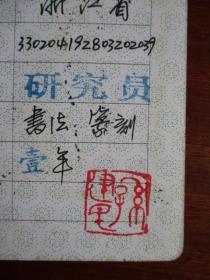 浙江省
330204192803202039
研究员
書法 篆刻
壹年